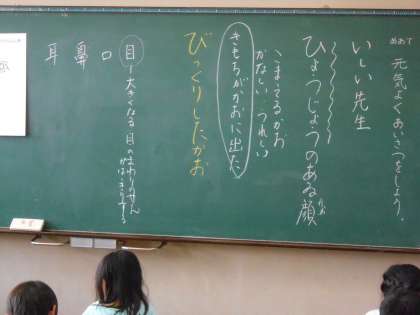 めあて
元気よくあいさつをしよう。
いしい先生
ひょうじょうのある顔
かお
こまってるかお
かなしい うれしい
きもちがかおに出た
びっくりしたかお
目 大きくなる 目のまわりの
口
鼻
耳